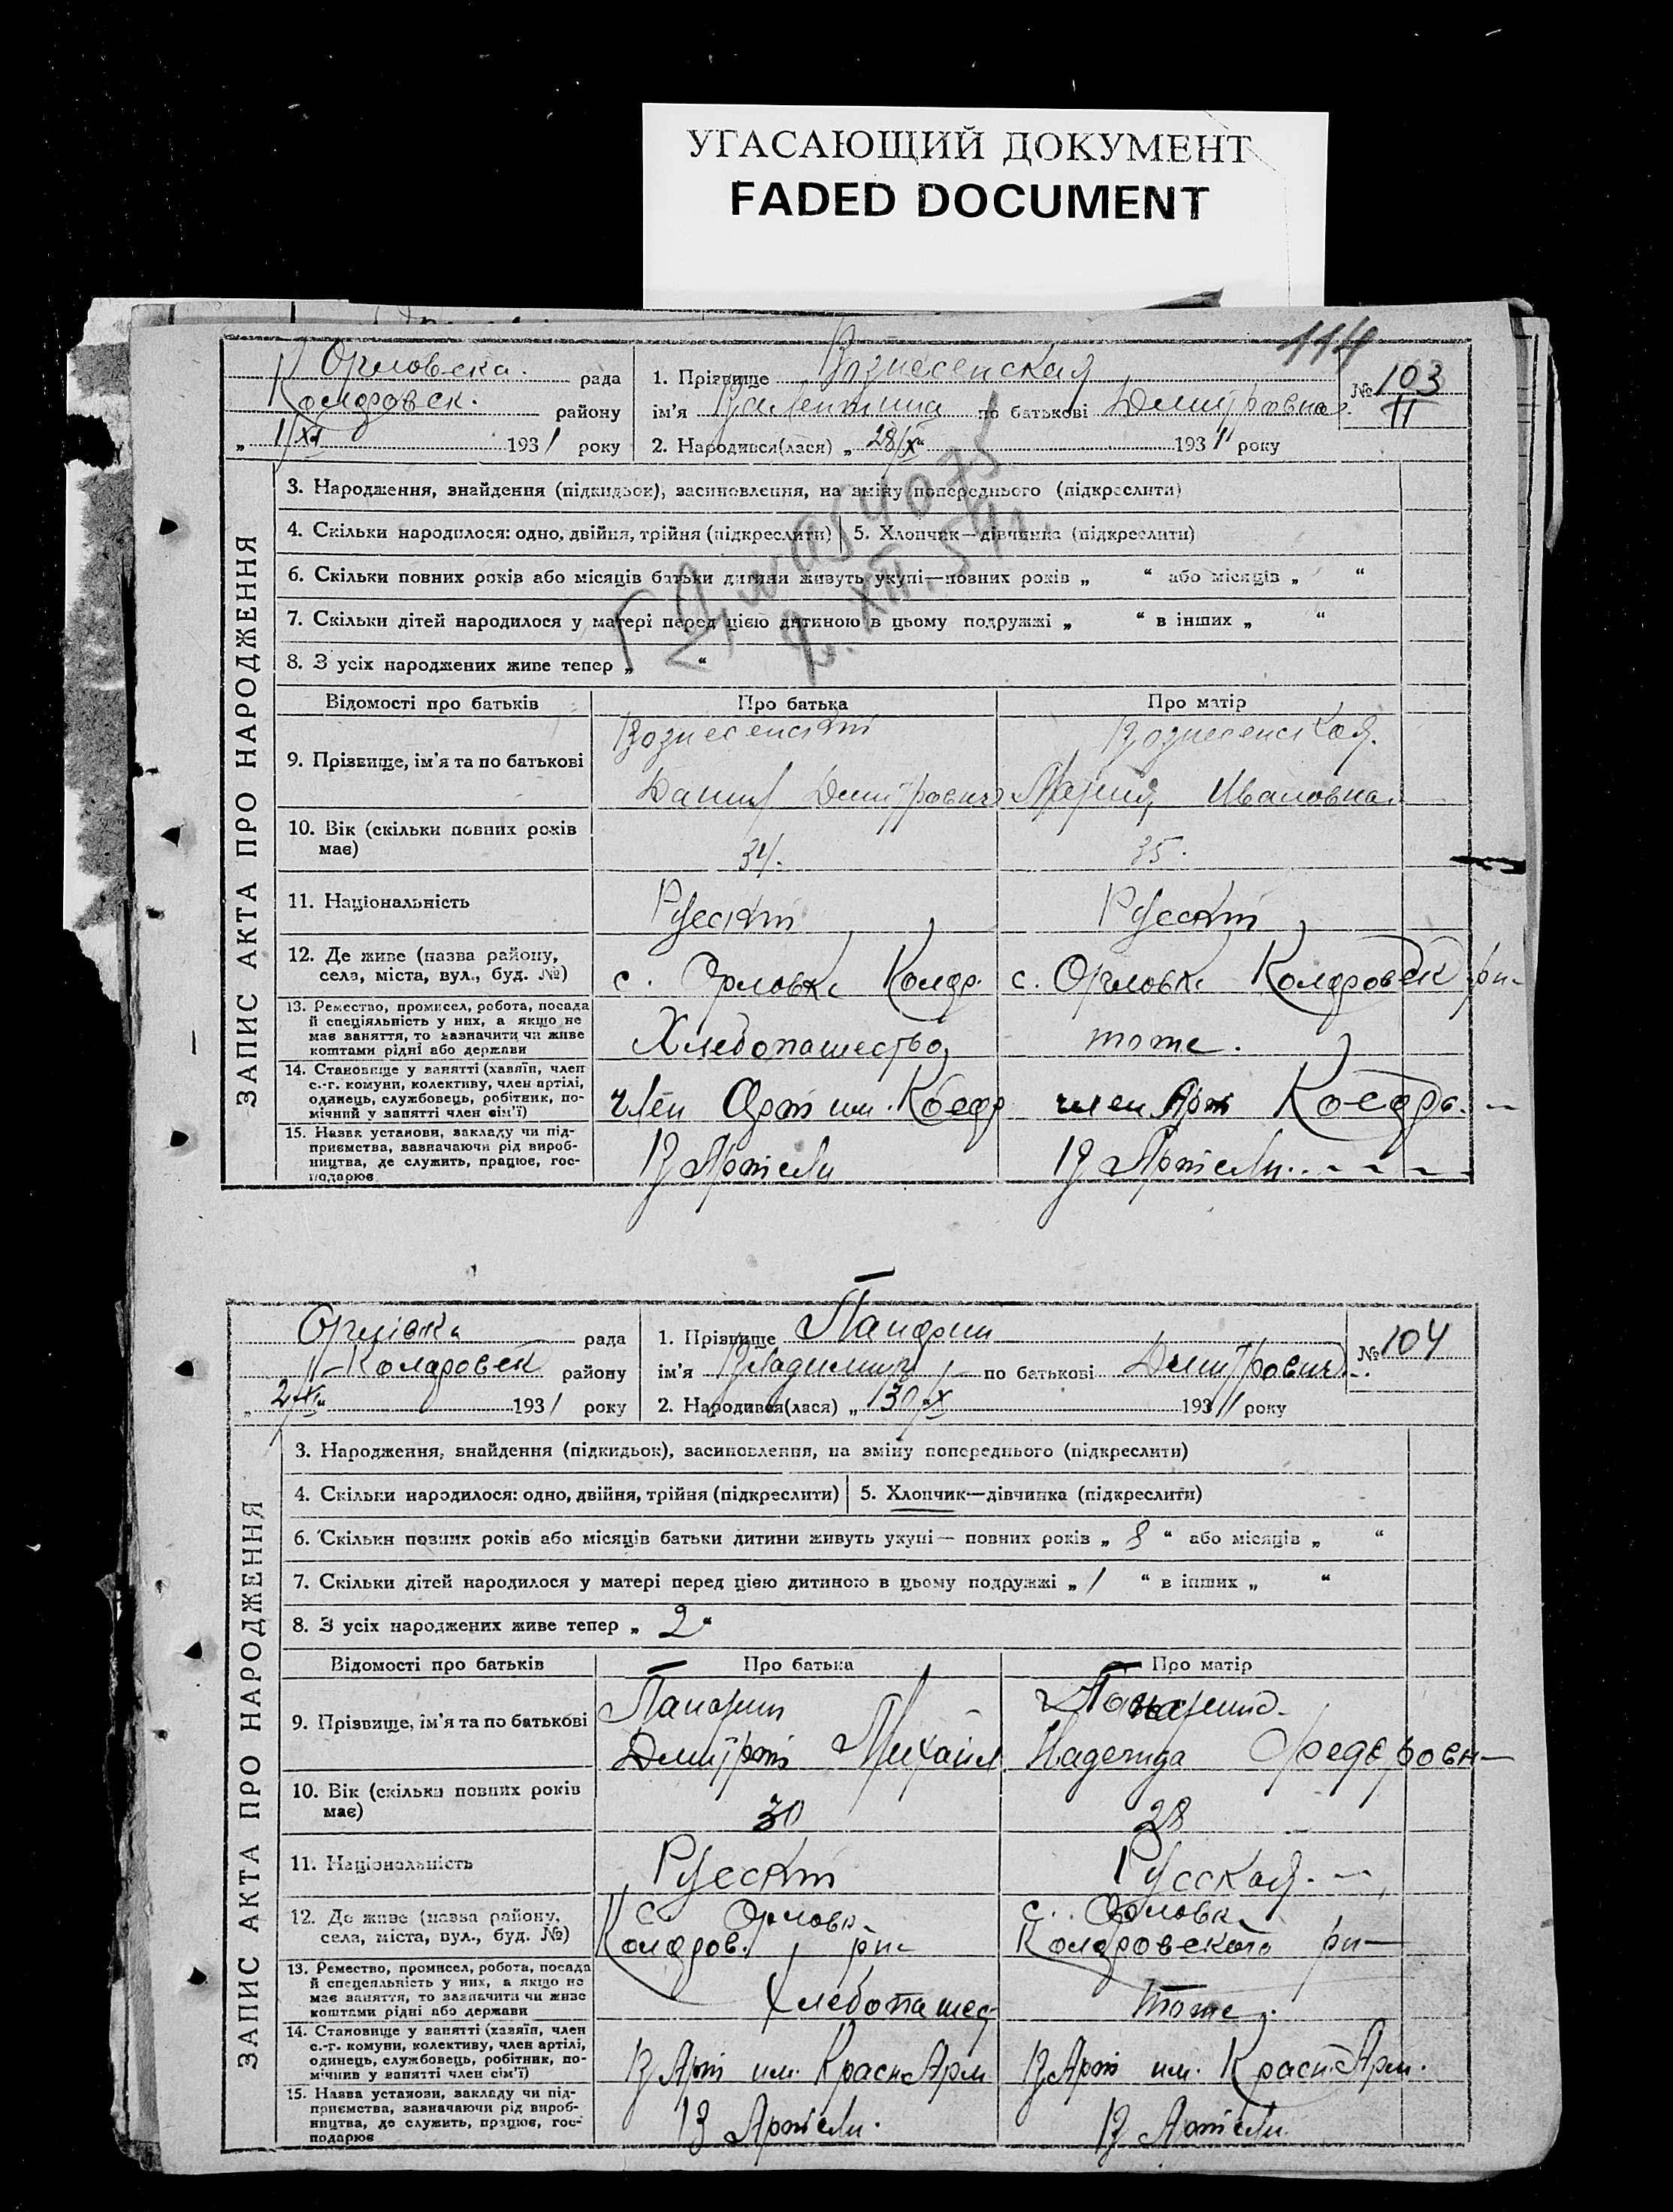 УГАСАЮЩИЙ ДОКУМЕНТ
FADED DOCUMENT
114
ЗАПИС АКТА ПРО НАРОДЖЕННЯ
Орловска. рада
район​у
1/XI 1931 року
1. Прізвище Вознесенская
ім'я Валентина по батькові Дмитровна
2. Народився(лася) „ 28/X 1931 року
№ 103
II
3. Народження, знайдення (підкидьок), засиновлення, на зміну попереднього (підкреслити)
4. Скільки народилося: одно, двійня, трійня (підкреслити) 5. Хлопчик—дівчинка (підкреслити)
6. Скільки повних років або місяців батьки дитини живуть укупі—повних років „ “ або місяців „ “
7. Скільки дітей народилося у матері перед цією дитиною в цьому подружжі „ “ в інших „ “
8. З усіх народжених живе тепер „ “
2. XII. 54 г.
Відомості про батьків Про батька Про матір
9. Прізвище, ім'я та по батькові
Вознесенский Вознесенская.
Данил Дмитрович Мария Ивановна
10. Вік (скільки повних років
має)
34. 35.
11. Національність Русский Русский
12. Де живе (назва району,
села, міста, вул., буд. №)
с. Орловка с. Орловка
13. Ремество, промисел, робота, посада
й спеціяльність у них, а якщо не
має заняття, то зазначити чи живе
коштами рідні або держави
Хлебопашество тоже.
14. Становище у занятті (хазяїн, член
с.-г. комуни, колективу, член артілі,
одинець, службовець, робітник, по-
мічний у занятті член сім'ї)
член Арт им. член Арт
15. Назва установи, закладу чи під-
приємства, зазначаючи рід вироб-
ництва, де служить, працює, гос-
подарює
В Артели В Артели.
ЗАПИС АКТА ПРО НАРОДЖЕННЯ
Орлівка рада
району
2/XI 1931 року
1. Прізвище Панарин
ім'я Владимир по батькові Дмитрович
2. Народився(лася) „ 30/X 1931 року
№ 104
3. Народження, знайдення (підкидьок), засиновлення, на зміну попереднього (підкреслити)
4. Скільки народилося: одно, двійня, трійня (підкреслити) 5. Хлопчик—дівчинка (підкреслити)
6. Скільки повних років або місяців батьки дитини живуть укупі— повних років „ 8 “ або місяців „ “
7. Скільки дітей народилося у матері перед цією дитиною в цьому подружжі „ 1 “ в інших „ “
8. З усіх народжених живе тепер „ 2 “
Відомості про батьків Про батька Про матір
9. Прізвище, ім'я та по батькові
Панарин Панарина
Дмитрий Михайл Надежда Федеровн
10. Вік (скільки повних років
має)
30 28
11. Національність Русский Русская.
12. Де живе (назва району,
села, міста, вул., буд. №)
с. Орловк с. Орловк
13. Ремество, промисел, робота, посада
й спецсяльність у них, а якщо не
має заняття, то зазначити чи живе
коштами рідні або держави
Хлебопашес тоже.
14. Становище у занятті (хазяїн, член
с.-г. комуни, колективу, член артілі,
одинець, службовець, робітник, по-
мічнив у занятті член сім'ї)
В Арт им. Красн Арм В Арт им. Красн. Арм.
15. Назва установи, закладу чи під-
приємства, зазначаючи рід вироб-
ництва, де служить, працює, гос-
подарює
В Артели. В Артели